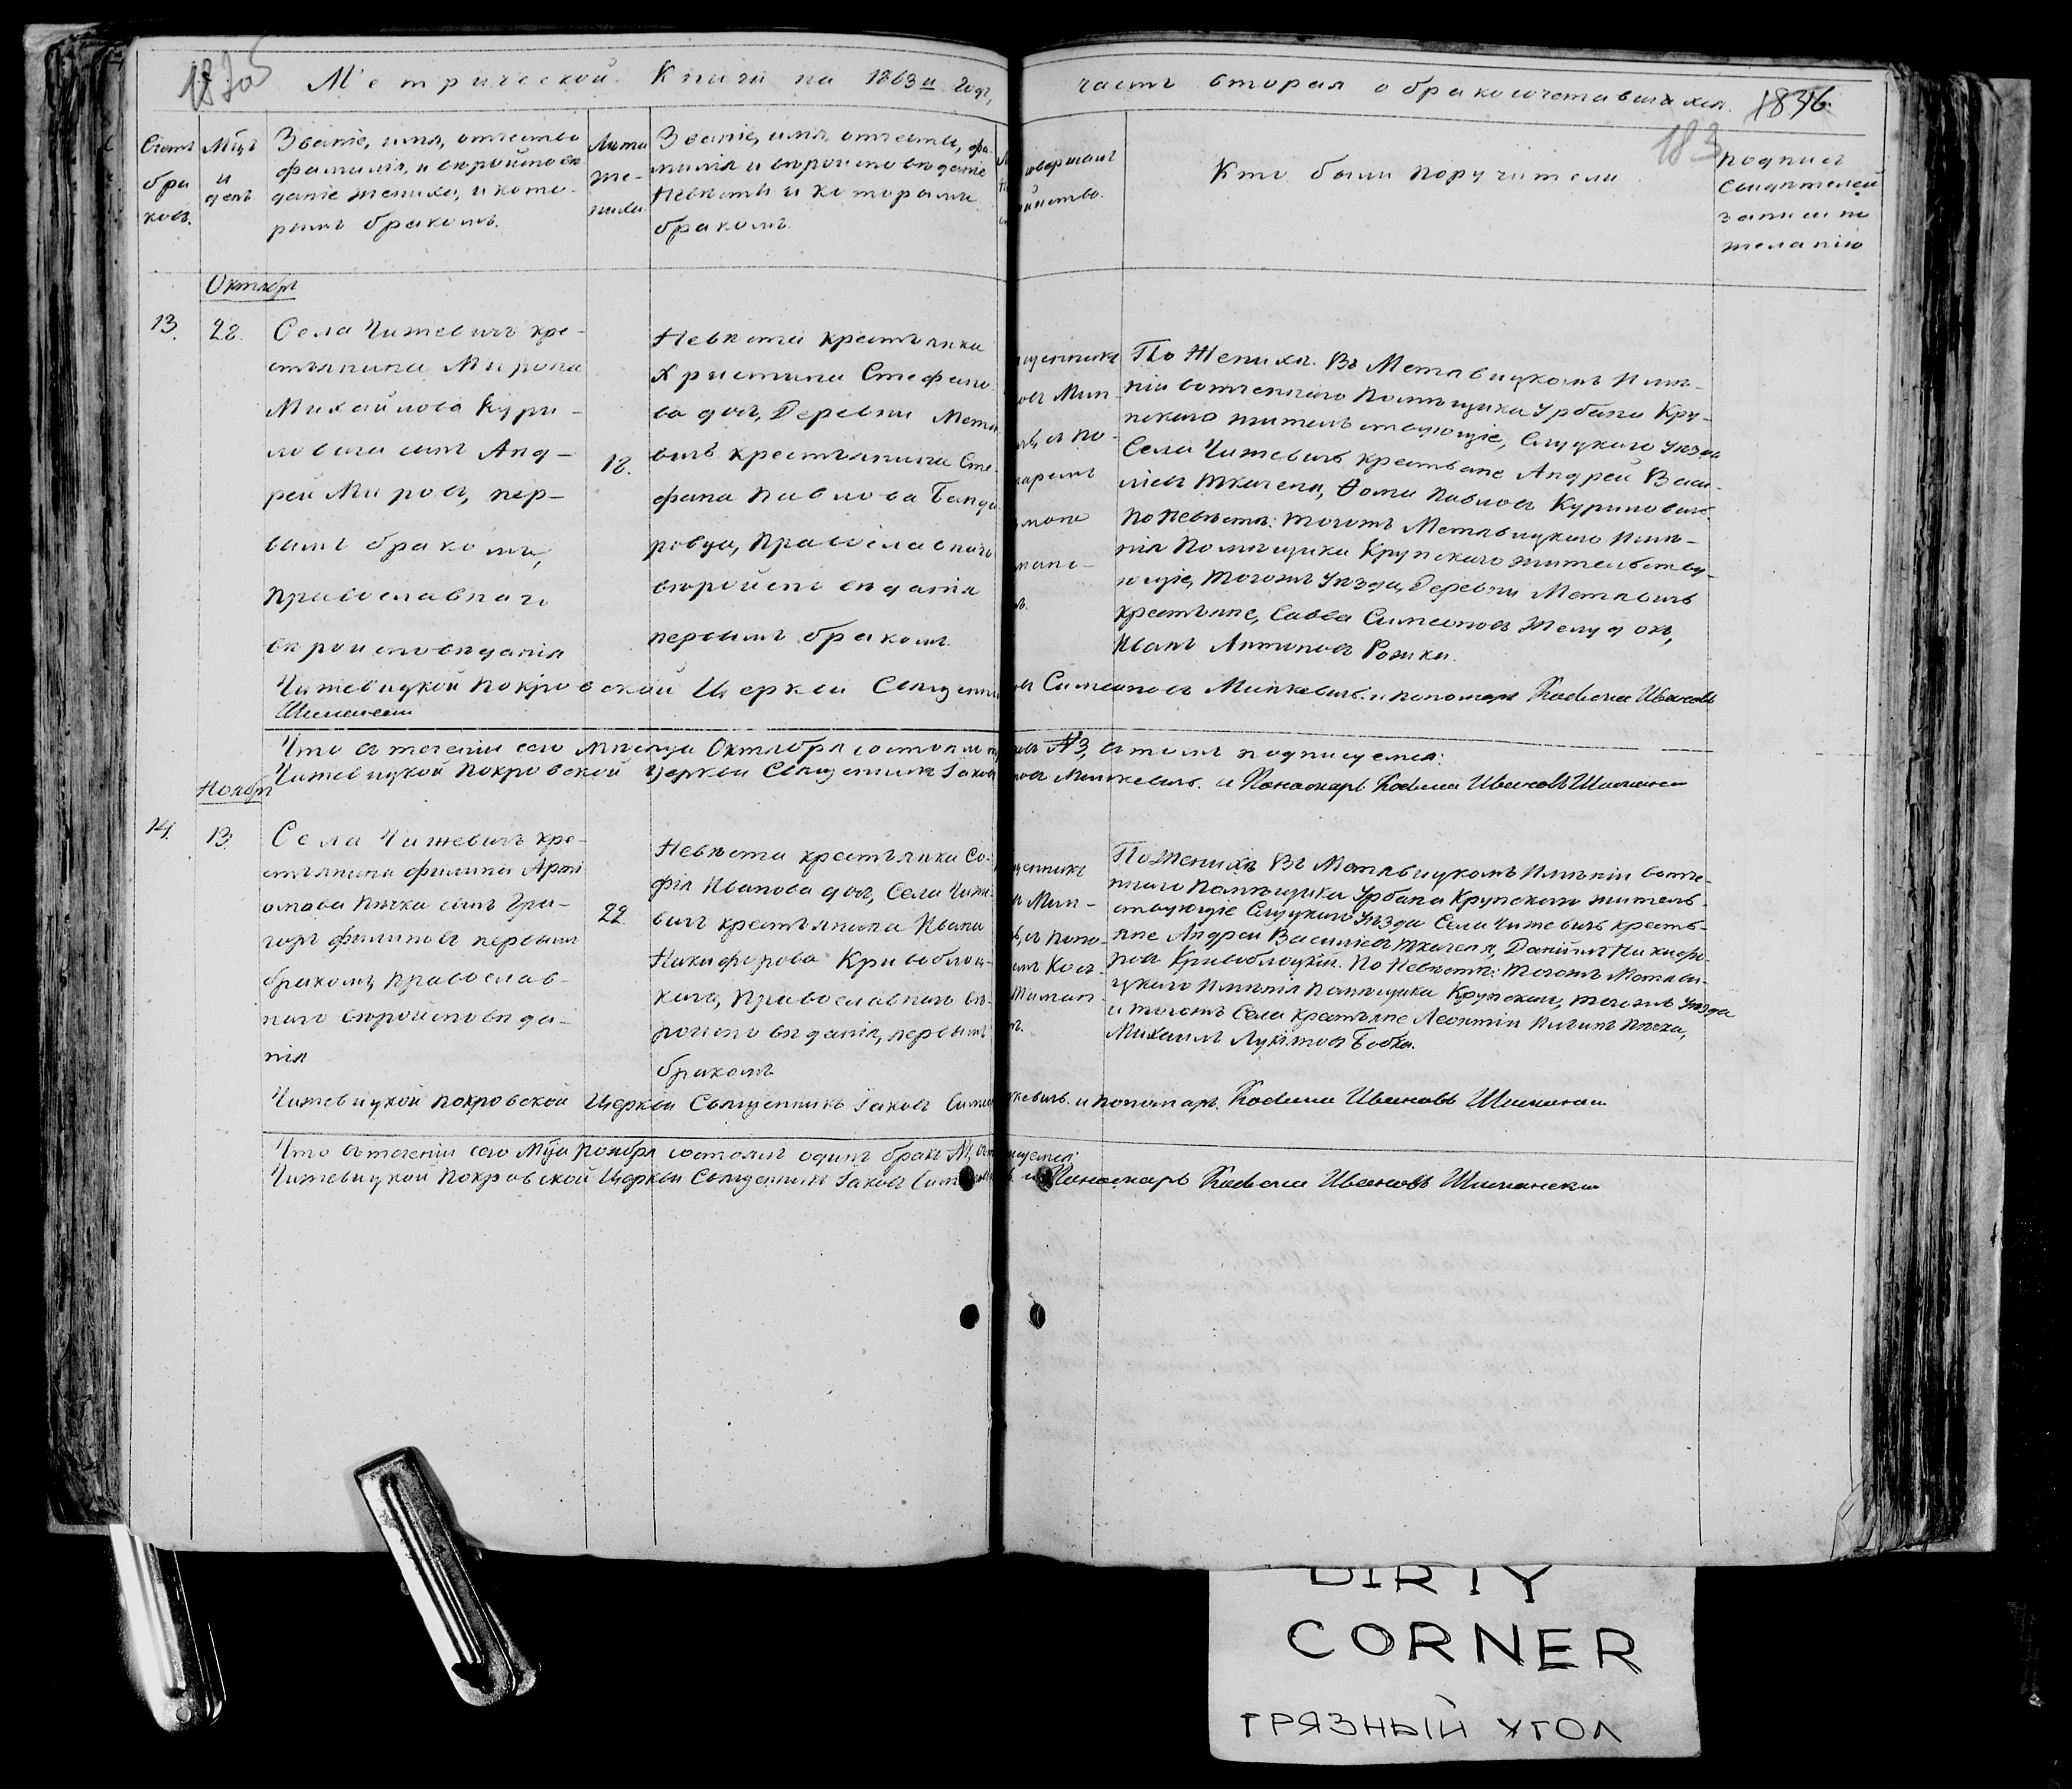 Метрической Книги на 1863й Годъ,
часть вторая о бракосочетавшихся.
1836
183
Счетъ
бра
ковъ.
Мцъ
и
день.
Званіе, имя, отчество
фамилія, и вѣроисповѣ
даніе жениха, и кото-
рымъ бракомъ.
Лета
же-
ниха
Званіе, имя, отчество, фа-
милія и вѣроисповѣданіе
Невѣсты и которымъ
бракомъ.
Кто были поручители
подпись
свидѣтелей
записи по
желанію
Октябрь
13.
28.
Села Чижевичъ кре-
стьянина Мирона
Михайлова Кури-
ловича сынъ Анд-
рей Мировъ, пер-
вымъ бракомъ,
православнаго
вѣроисповѣданія
18.
Невѣста крестьянка
Христина Стефано-
ва дочь, Деревни Метя
вичь крестьянина Сте-
фана Павлова
ровца, Православнаго
вѣроисповѣданія
первымъ бракомъ.
По Женихѣ. Въ Метявицкомъ Имѣ-
ніи вотченного Помѣщика Урбана Кру-
пскаго жительствующіе, Слуцкаго Уѣзда
Села Чижевичь крестьяне Андрей Васи-
ліевъ Ткаченя, Фома Павловъ Куриловичь.
По Невѣстѣ: тогожъ Метявицкаго Имѣ-
нія Помѣщика Крупскаго жительству-
ющіе, тогожъ Уѣзда, Деревни Метявичь
крестьяне, Савва Симеоновъ Желудокъ,
Иванъ Антоновъ Рожка.
Чижевицкой Покровской Церкви Священни
въ Симеоновъ Минкевичь. и пономарь Косьма Ивановъ
Шиманскi
Что въ теченіи сего мѣсяца Октября состоял
№3, въ томъ подписуемся:
Чижевицкой Покровской Церкви Священникъ Іаковъ
Минкевичь. и Пономарь Косьма Ивановъ Шимански
Ноябрь
14.
13.
Села Чижевичъ кре-
стьянина Филипа Арті
омова Пячка сынъ Гри-
горъ Филиповъ первымъ
бракомъ, православ-
наго вѣроисповѣда-
нія
22.
Невѣста крестьянка Со-
фія Иванова дочь, Села Чиже
вичь крестьянина Ивана
Никифорова Кривоблоц-
каго, Православнаго вѣ-
роисповѣданія, первымъ
бракомъ
По Женихѣ Въ Метявицкомъ Имѣніи вотче-
нного Помѣщика Урбана Крупскаго житель-
ствующіе Слуцкаго Уѣзда Села Чижевичь кресть-
яне Андрей Василіевъ Ткаченя, Даніилъ Никифо-
ровъ Кривоблоцкій. По Невѣстѣ: тогожъ Метяви-
цкаго Имѣнія Помѣщика Крупскаго, тогожъ Уѣзда
и тогожъ Села крестьяне Леонтій Пячка,
Михаилъ Бобка.
Чижевицкой Покровской Церкви Священникъ Іаковъ Симе
кевичь. и пономарь. Косьма Ивановъ Шимански
Что въ теченіи сего Мца Ноября состоялся одинъ бракъ №1, въ
исуемся:
Чижевицкой Покровской Церкви Священникъ Іаковъ Сим
Пономарь Косьма Ивановъ Шимански
DIRTY
CORNER
ГРЯЗНЫЙ УГОЛ